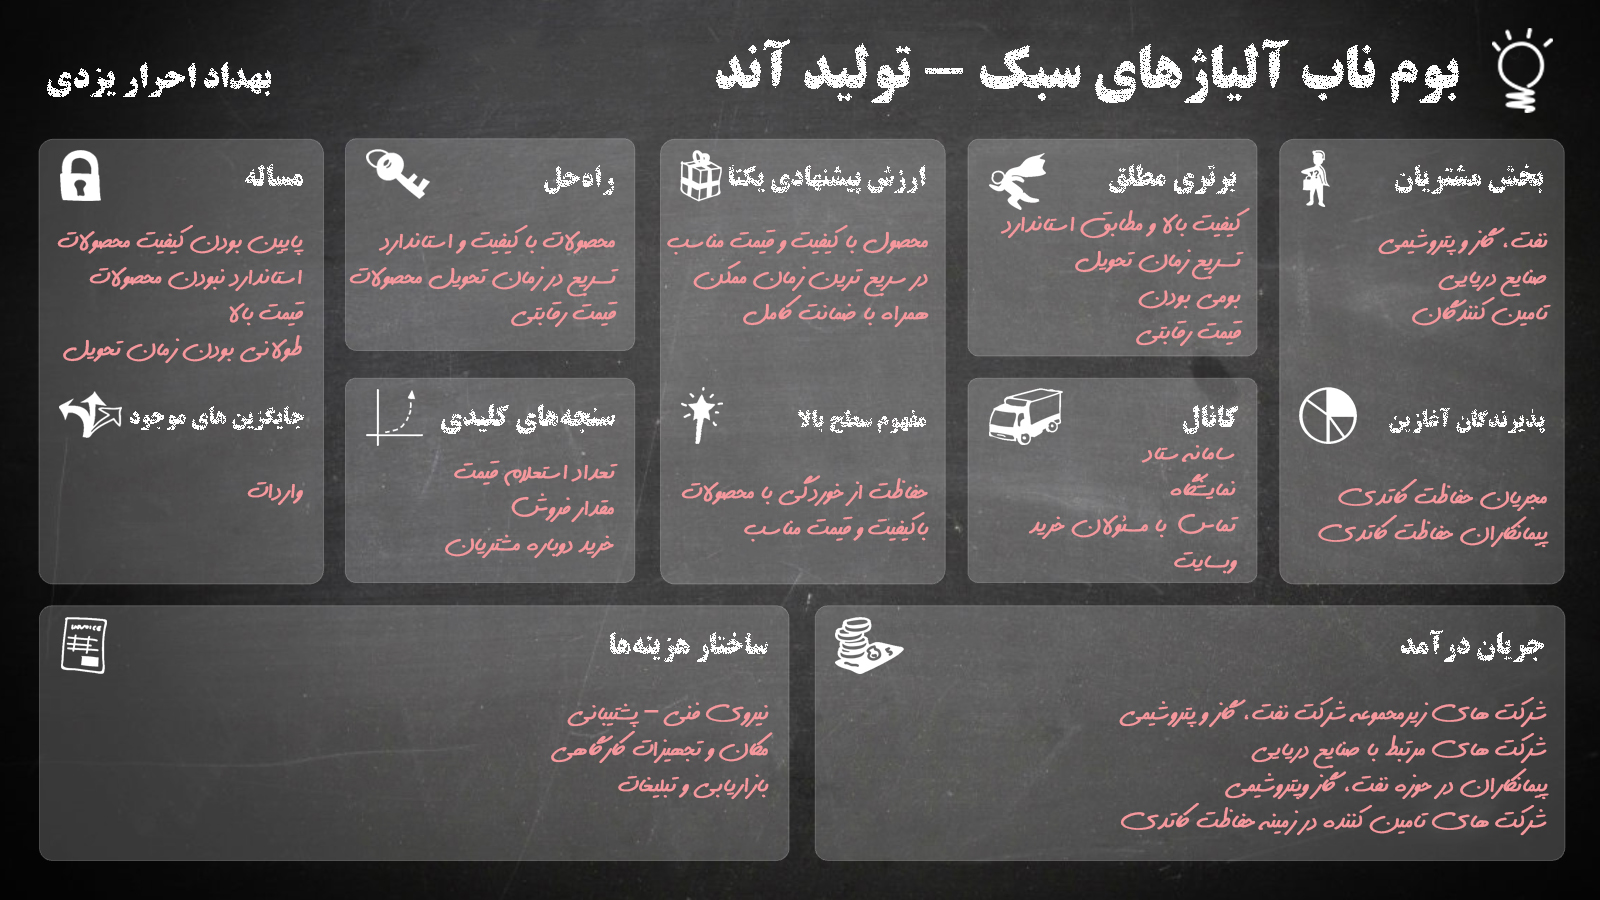 بوم ناب آلیاژهای سبک – تولید آند
بهداد احرار یزدی
بخش مشتریان
نفت، گاز و پتروشیمی
صنایع دریایی
تامین کنندگان
پذیرندگان آغازین
مجریان حفاظت کاتدی
پیمانکاران حفاظت کاتدی
برتری مطلق
کیفیت بالا و مطابق استاندارد
تسریع زمان تحویل
بومی بودن
قیمت رقابتی
کانال
سامانه ستاد
نمایشگاه
تماس با مسئولان خرید
وبسایت
ارزش پیشنهادی یکتا
محصول با کیفیت و قیمت مناسب
در سریع ترین زمان ممکن
همراه با ضمانت کامل
مفهوم سطح بالا
حفاظت از خوردگی با محصولات
باکیفیت و قیمت مناسب
راه‌حل
محصولات با کیفیت و استاندارد
تسریع در زمان تحویل محصولات
قیمت رقابتی
سنجه‌های کلیدی
تعداد استعلام قیمت
مقدار فروش
خرید دوباره مشتریان
مساله
پایین بودن کیفیت محصولات
استاندارد نبودن محصولات
قیمت بالا
طولانی بودن زمان تحویل
جایگزین های موجود
واردات
جریان درآمد
شرکت های زیرمجموعه شرکت نفت، گاز و پتروشیمی
شرکت های مرتبط با صنایع دریایی
پیمانکاران در حوزه نفت، گاز وپتروشیمی
شرکت های تامین کننده در زمینه حفاظت کاتدی
ساختار هزینه‌ها
نیروی فنی – پشتیبانی
مکان و تجهیزات کارگاهی
بازاریابی و تبلیغات
INVOICE